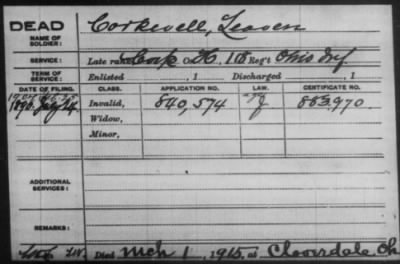 DEAD
Corkwell, Leaven
NAME OF SOLDIER:
SERVICE: Late rank Corp Co. H, 118 Reg't Ohio Inf
TERM OF SERVICE: Enlisted , 1 Discharged , 1
DATE OF FILING. CLASS. APPLICATION NO. LAW. CERTIFICATE NO.
1890 July 14 Invalid, 840,574 J 883,970.
Widow,
Minor,
ADDITIONAL SERVICES:
REMARKS:
Died Mch 1, 1915, at Cloverdale, Oh